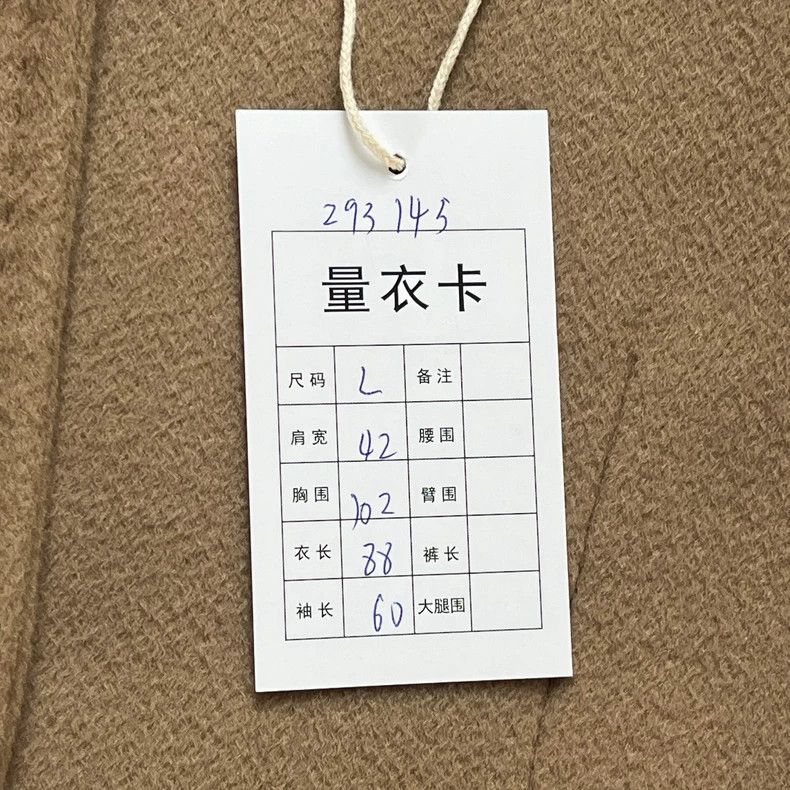 293145
量衣卡
尺码 L 备注
肩宽 42 腰围
胸围 102 臂围
衣长 88 裤长
袖长 60 大腿围